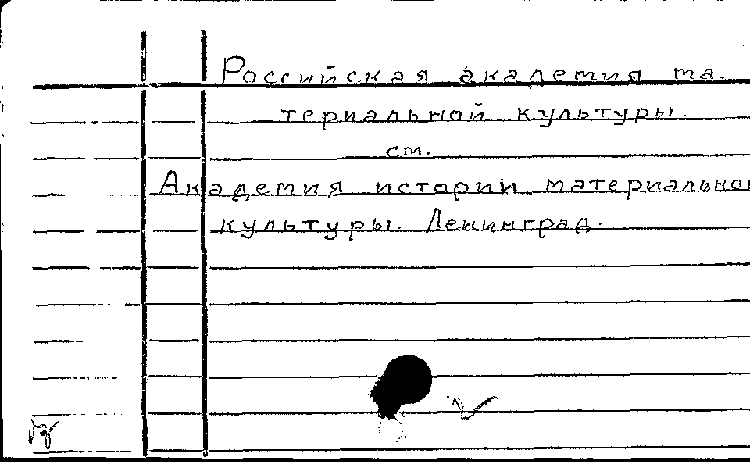 Российская академия ма-
териальной культуры
см.
Академия истории материально
культуры. Ленинград.